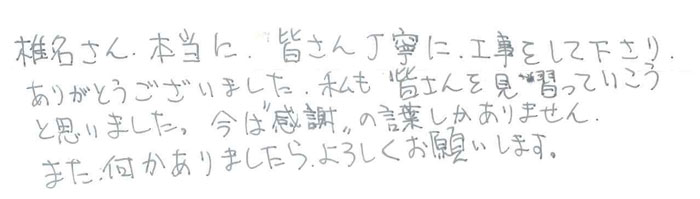 椎名さん.本当に.皆さん丁寧に.工事をして下さり.
ありがとうございました.私も皆さんを見習っていこう
と思いました。今は"感謝"の言葉しかありません.
また.何かありましたら.よろしくお願いします。